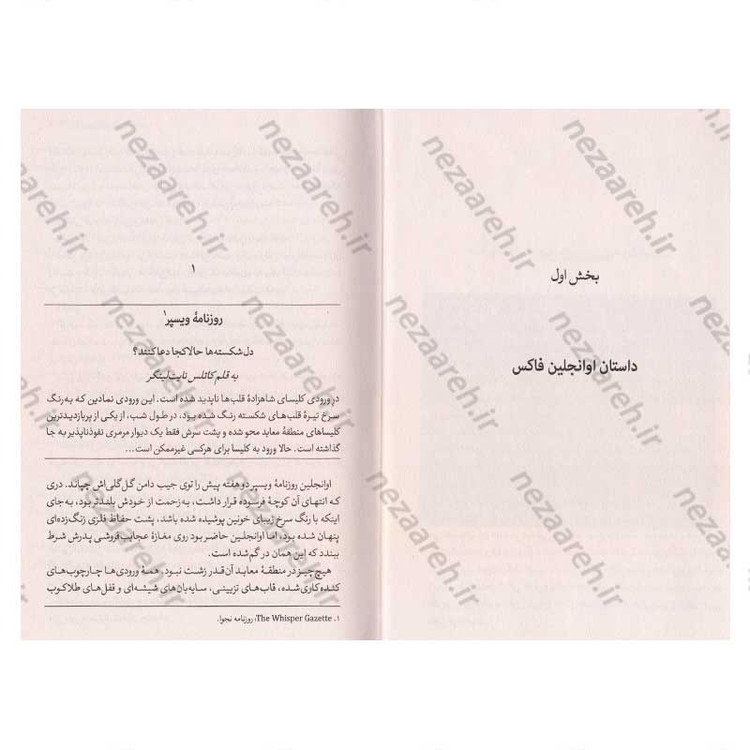 بخش اول
داستان اوانجلین فاکس
۱
روزنامهٔ ویسپر۱
دل‌شکسته‌ها حالا کجا دعا کنند؟
به قلم کاتلس نایت‌لینگر
در ورودی کلیسای شاهزادهٔ قلب‌ها ناپدید شده است. این ورودی نمادین که به‌رنگ
سرخ تیرهٔ قلب‌های شکسته رنگ شده بود، در طول شب، از یکی از پربازدیدترین
کلیساهای منطقهٔ معابد محو شده و پشت سرش فقط یک دیوار مرمری نفوذناپذیر به جا
گذاشته است. حالا ورود به کلیسا برای هرکسی غیرممکن است...
اوانجلین روزنامهٔ ویسپر دو هفته پیش را توی جیب دامن گل‌گلی‌اش چپاند. دری
که انتهای آن کوچهٔ فرسوده قرار داشت، به‌زحمت از خودش بلندتر بود، به‌جای
اینکه با رنگ سرخ زیبای خونین پوشیده شده باشد، پشت حفاظ فلزی زنگ‌زده‌ای
پنهان شده بود، اما اوانجلین حاضر بود روی مغازهٔ عجایب‌فروشی پدرش شرط
ببندد که این همان در گم‌شده است.
هیچ‌چیز در منطقهٔ معابد آن‌قدر زشت نبود. همهٔ ورودی‌ها چارچوب‌های
کنده‌کاری‌شده، قاب‌های تزیینی، سایه‌بان‌های شیشه‌ای و قفل‌های طلاکوب
۱. The Whisper Gazette؛ روزنامه نجوا.
nezaareh.ir
nezaareh.ir
nezaareh.ir
nezaareh.ir
nezaareh.ir
nezaareh.ir
nezaareh.ir
nezaareh.ir
nezaareh.ir